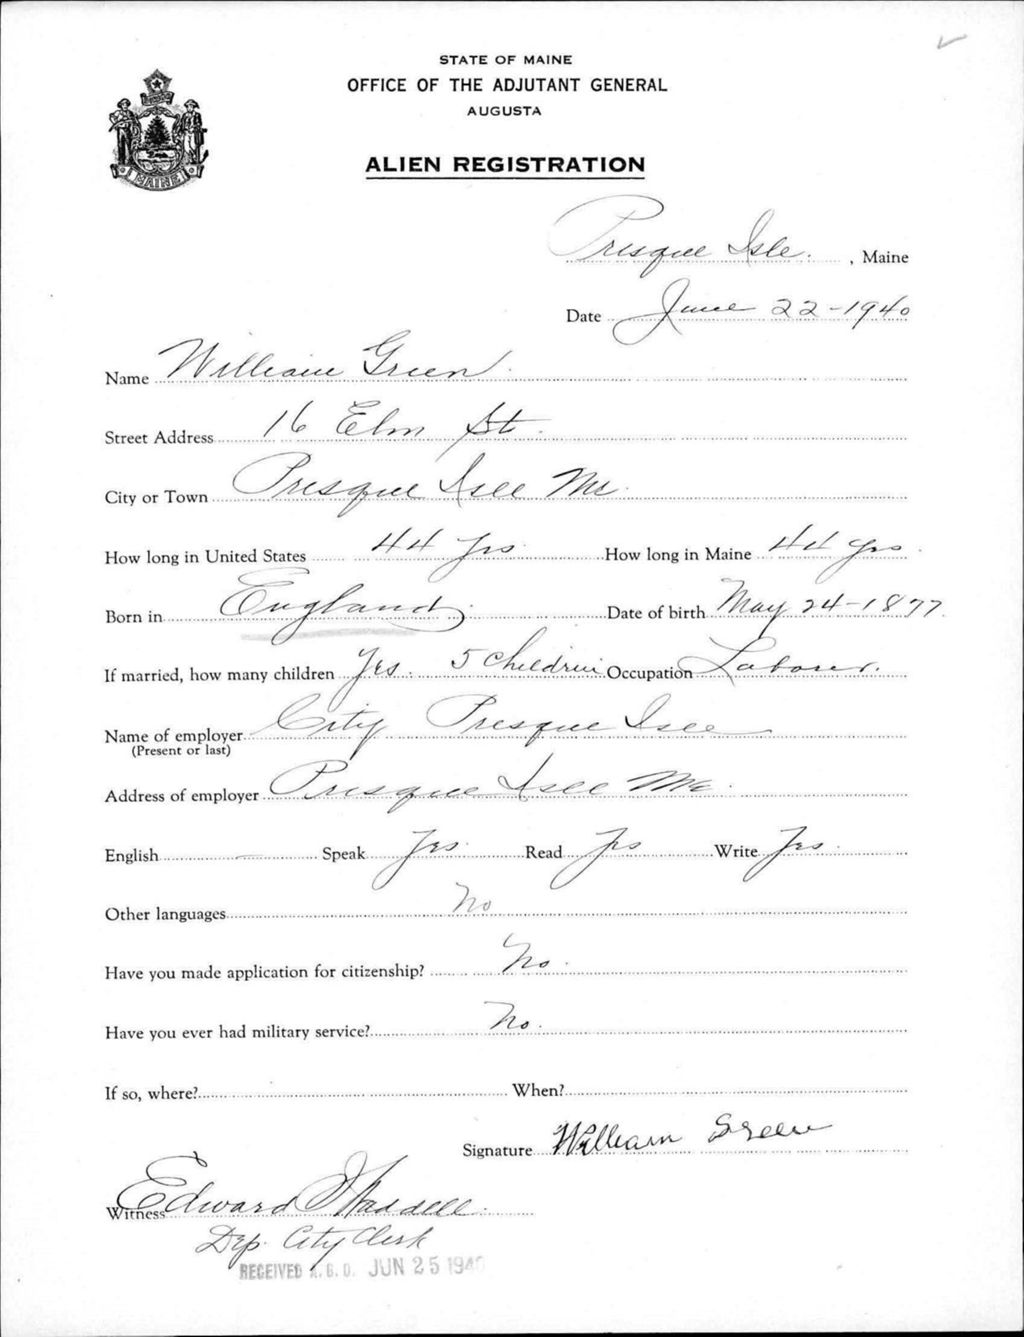 STATE OF MAINE
OFFICE OF THE ADJUTANT GENERAL
AUGUSTA
MAINE
ALIEN REGISTRATION
Presque Isle. , Maine
Date June 22-1940
Name William Green
Street Address 16 Elm St.
City or Town Presque Isle Me.
How long in United States 44 yrs How long in Maine 44 yrs.
Born in England. Date of birth May 24-1877.
If married, how many children Yes. 5 Children Occupation Laborer.
Name of employer City Presque Isle
(Present or last)
Address of employer Presque Isle Me.
English — Speak Yes. Read Yes Write Yes.
Other languages No
Have you made application for citizenship? No.
Have you ever had military service? No.
If so, where? When?
Signature William Green
Witness Edward Waddell.
Dep. City Clerk
RECEIVED A.G.O. JUN 25 1940